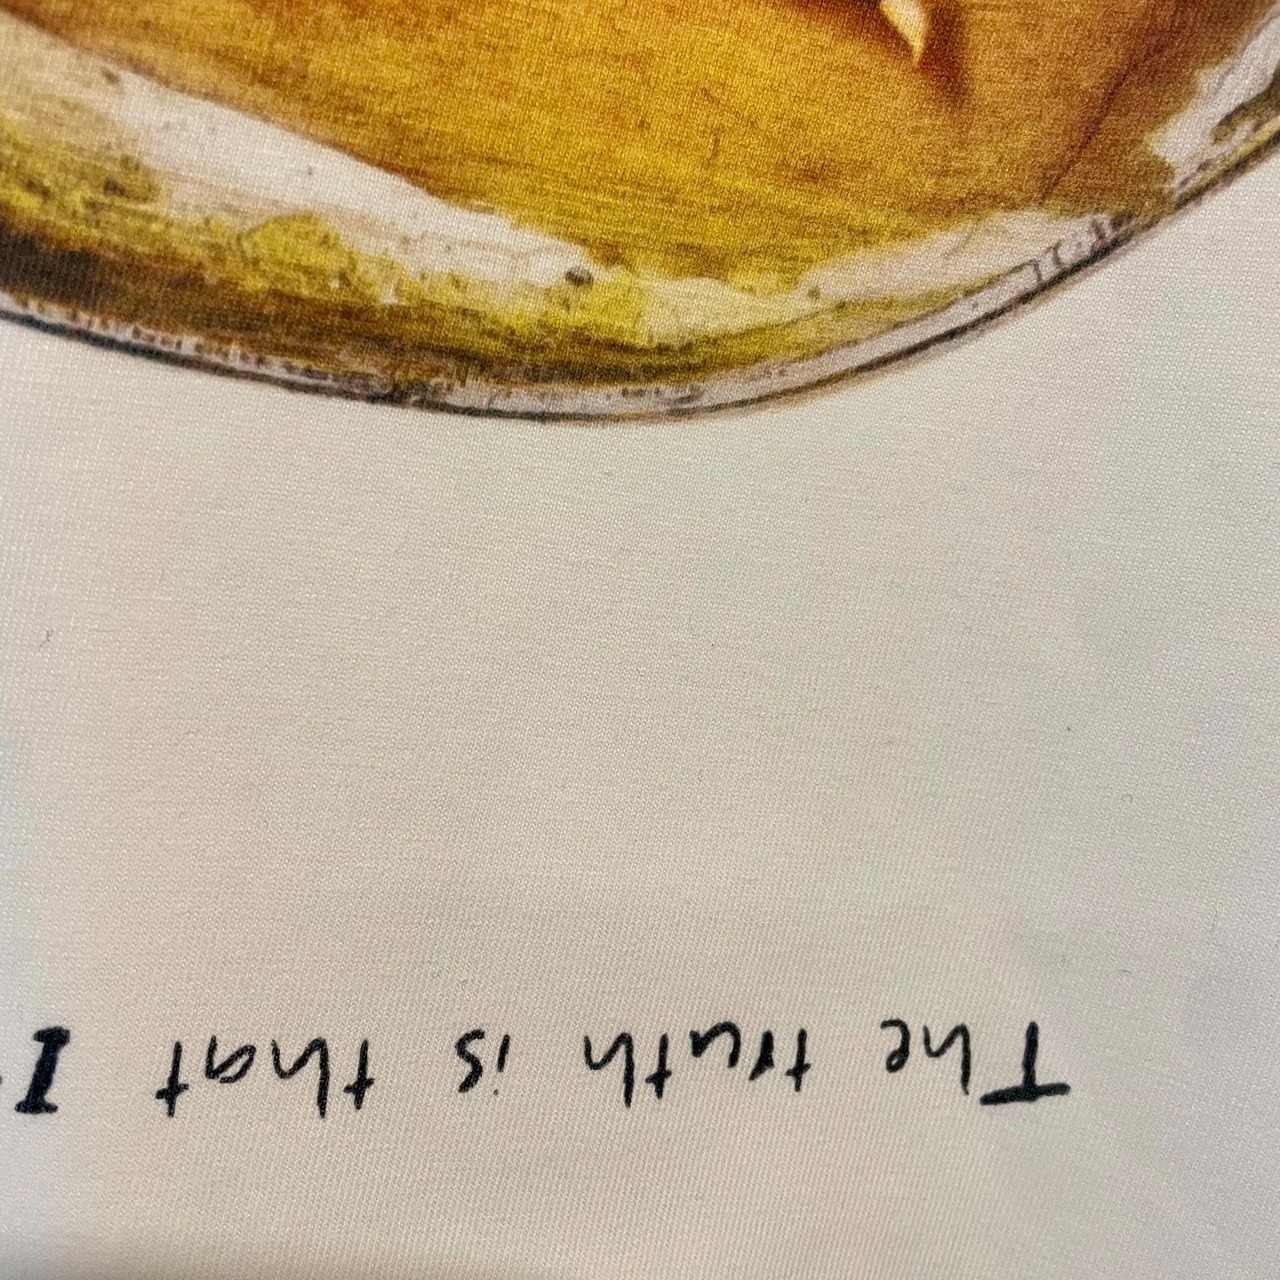 The truth is that I